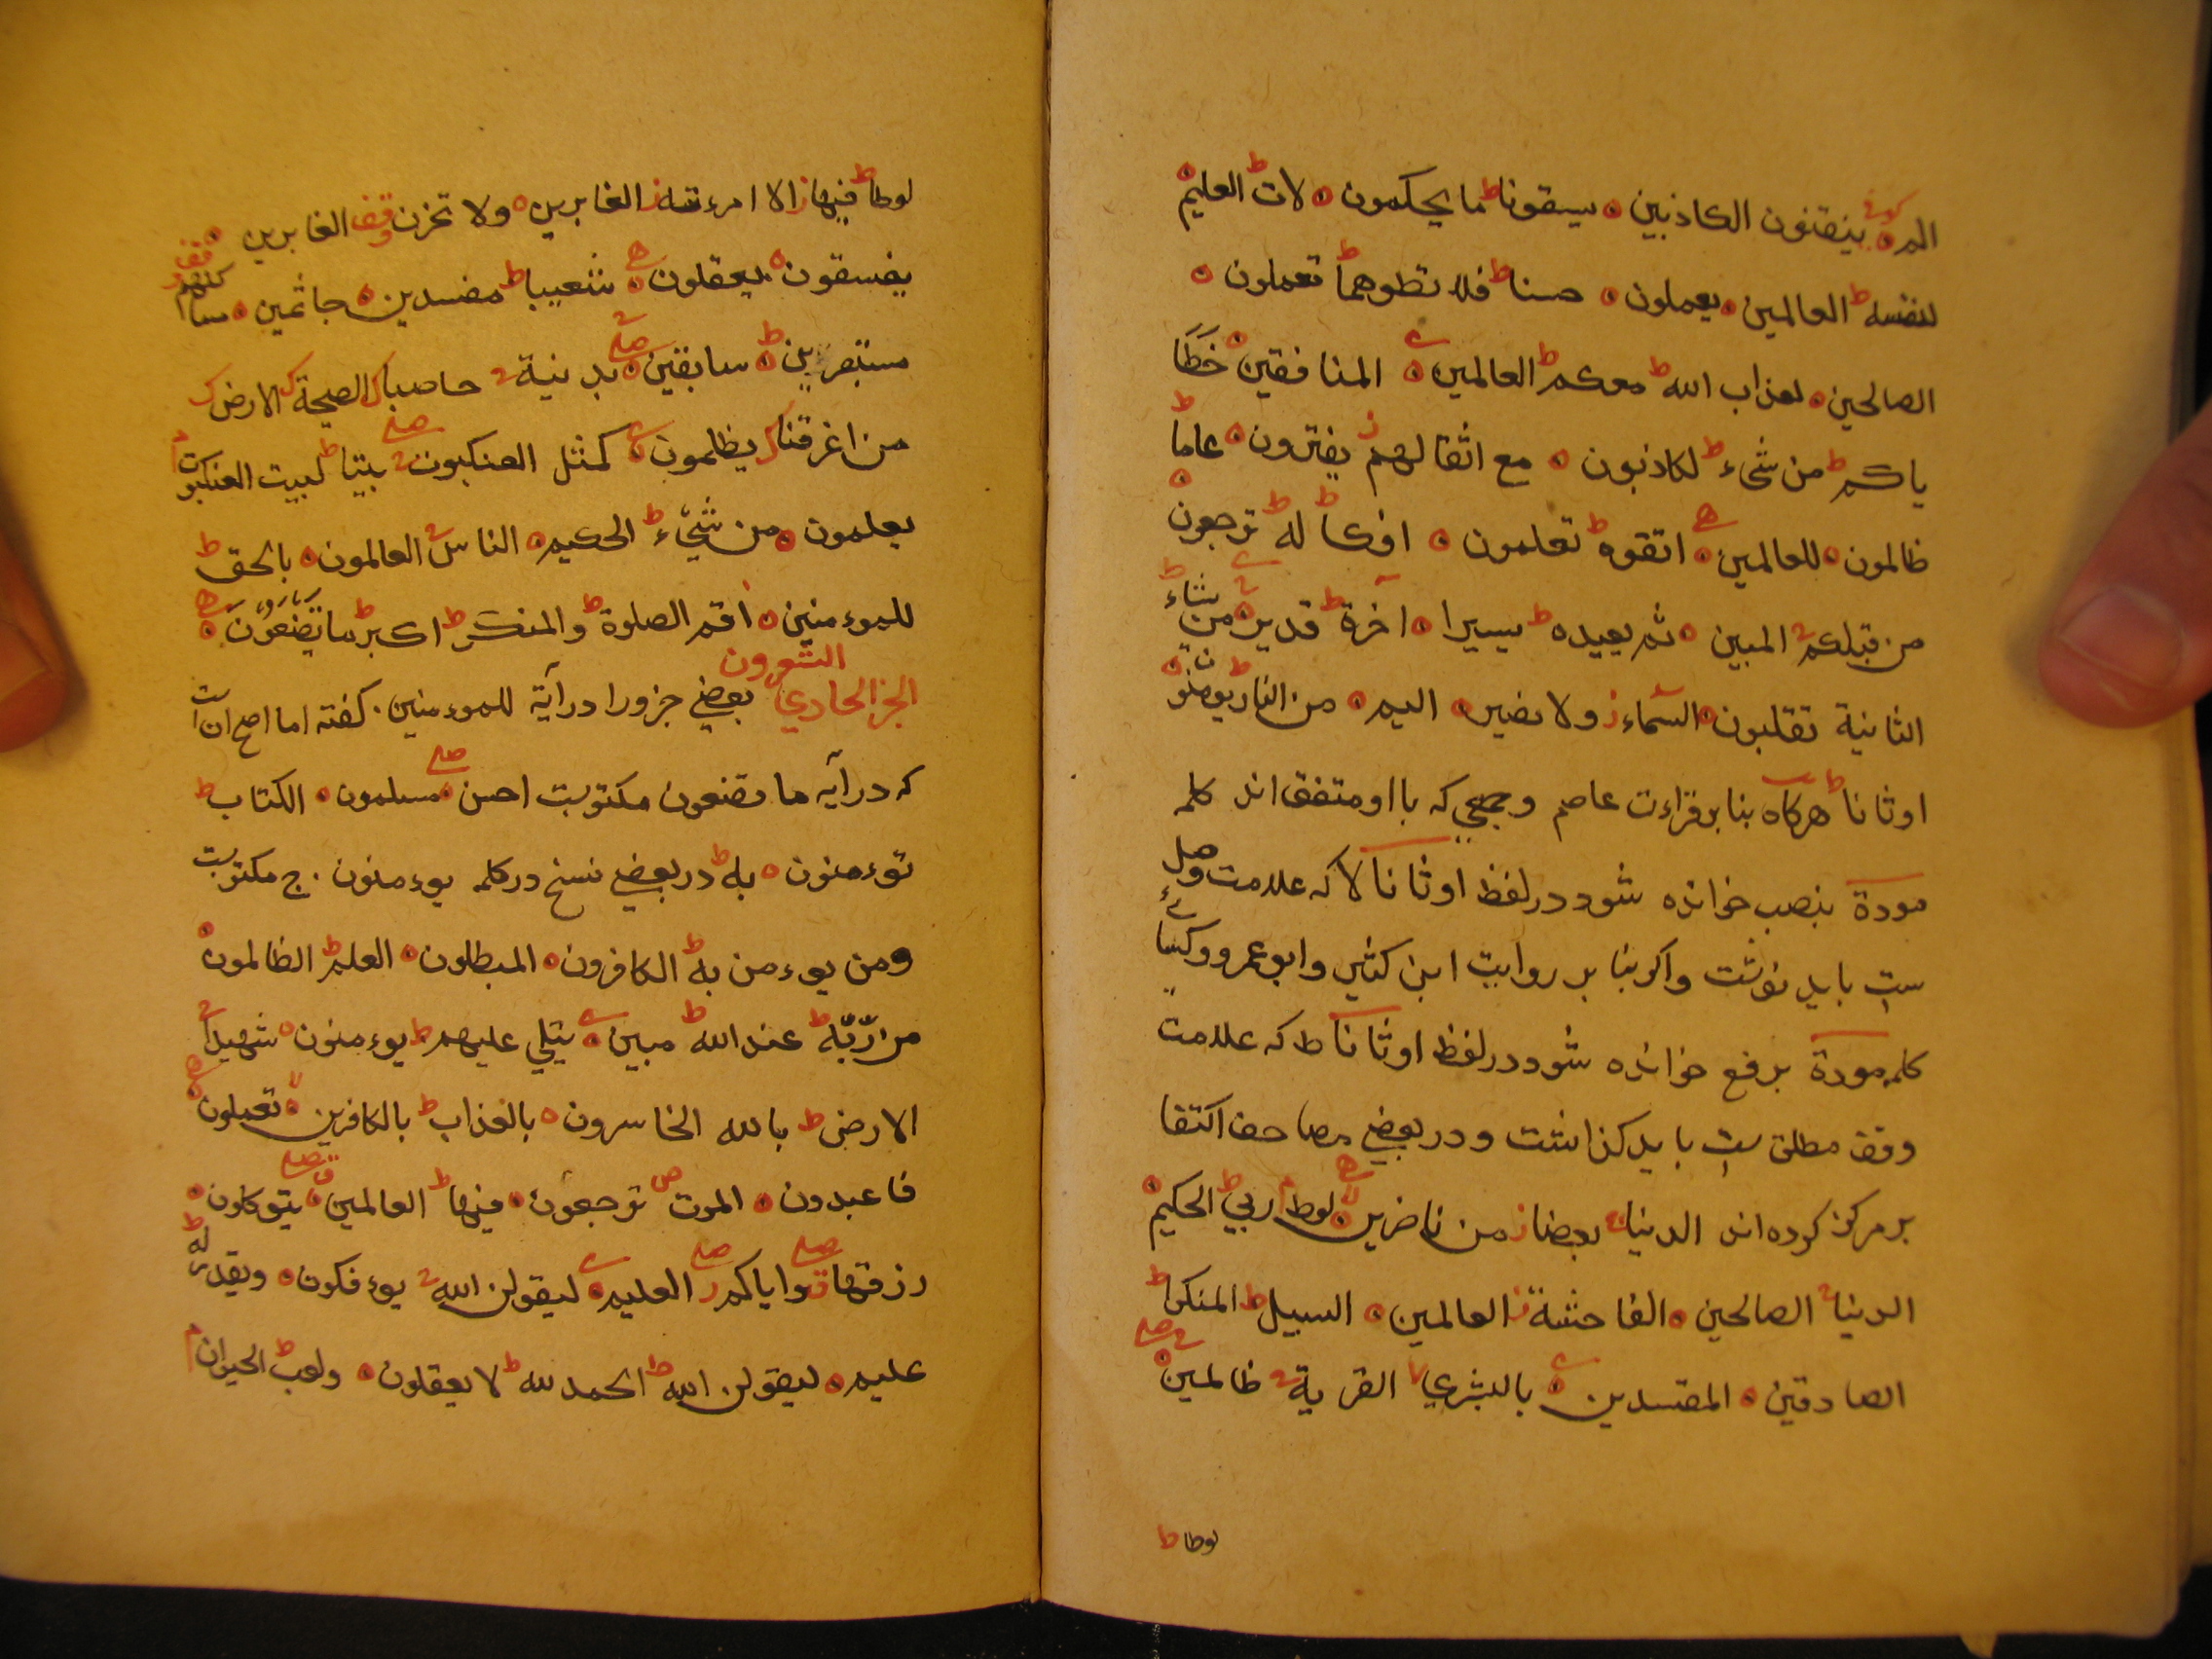 الم ه يفتنون الكاذبين ه يسبقونا ط ما يحكمون ه لات ط العليم ه
لنفسه ط العالمين ه يعملون ه حسنا ط فلا تطعهما ط تعملون ه
الصالحين ه لعذاب الله ط معكم ط العالمين ه المنافقين ه خَطَا
ياكم ط من شیء ط لكاذبون ه مع اثقالهم ز يفترون ه عاما ط
ظالمون ه للعالمين ه اتقوه ط تعلمون ه افكا ط له ط ترجعون ه
من قبلكم المبين ه ثم يعيده ط يسيرا ه اخرة ط قدير ه من يشاء ط
الثانية تقلبون ه السماء ز ولا نصير ه اليم ه من النار ط يومنون ه
اوثانا ط هركاه بنابر قراءت عاصم وجمعي كه با او متفق اند كلمه
مودة بنصب خوانده شود در لفظ اوثانا لا كه علامت وصل
ست بايد نوشت واكر بنا بر روايت ابن كثير وابو عمرو وكسائ
كلمه مودة برفع خوانده شود در لفظ اوثانا ط كه علامت
وقف مطلق ست بايد كذاشت ودر بعضي مصاحف اكتفا
بر مركز كرده اند الدنيا بعضا ز من ناصرين ه لوط م ربي ط الحكيم ه
الدنيا الصالحين ه الفاحشة ز العالمين ه السبيل المنكر ط
الصادقين ه المفسدين ه بالبشرى لا القرية ظالمين ه
لوطا ط
لوطا ط فيها ز الا امرءته ز الغابرين ه ولا تحزن قف الغابرين ه
يفسقون ه يعقلون ه شعيبا ط مفسدين ه جاثمين ه مساكنهم قف
مستبصرين ه سابقين ه بذنبه صلے حاصبا ك الصيحة ك الارض ك
من اغرقنا ك يظلمون ه كمثل العنكبوت صلے بيتا ط لبيت العنكبوت م
يعلمون ه من شيء ط الحكيم ه الناس العالمون ه بالحق ط
للموءمنين ه اقم الصلوة ط والمنكر ط اكبر ط ما تصنعون ه
الجز الحادي العشرون بعضي جزو را در آية للموءمنين . كفته اما اصح ان ست
كه در آيه ما تصنعون مكتوبست احسن صلے مسلمون ه الكتاب ط
توءمنون ه به ط در بعضي نسخ در كلمه يوءمنون . ج مكتوبست
ومن يوءمن به ط الكافرون ه المبطلون ه العلم ط الظالمون ه
من ربّه ط عند الله ط مبين ه يتلي عليهم ط يوءمنون ه شهيدا
الارض ط بالله الخاسرون ه بالعذاب ط بالكافرين لا تعملون ه
فاعبدون ه الموت ترجعون ه فيها ط العالمين ه يتوكلون ه
رزقها واياكم صلے العليم ه ليقولن الله يوءفكون ه ويقدر له ط
عليم ه ليقولن الله ط الحمد لله ط لا يعقلون ه ولعب ط الحيوان م